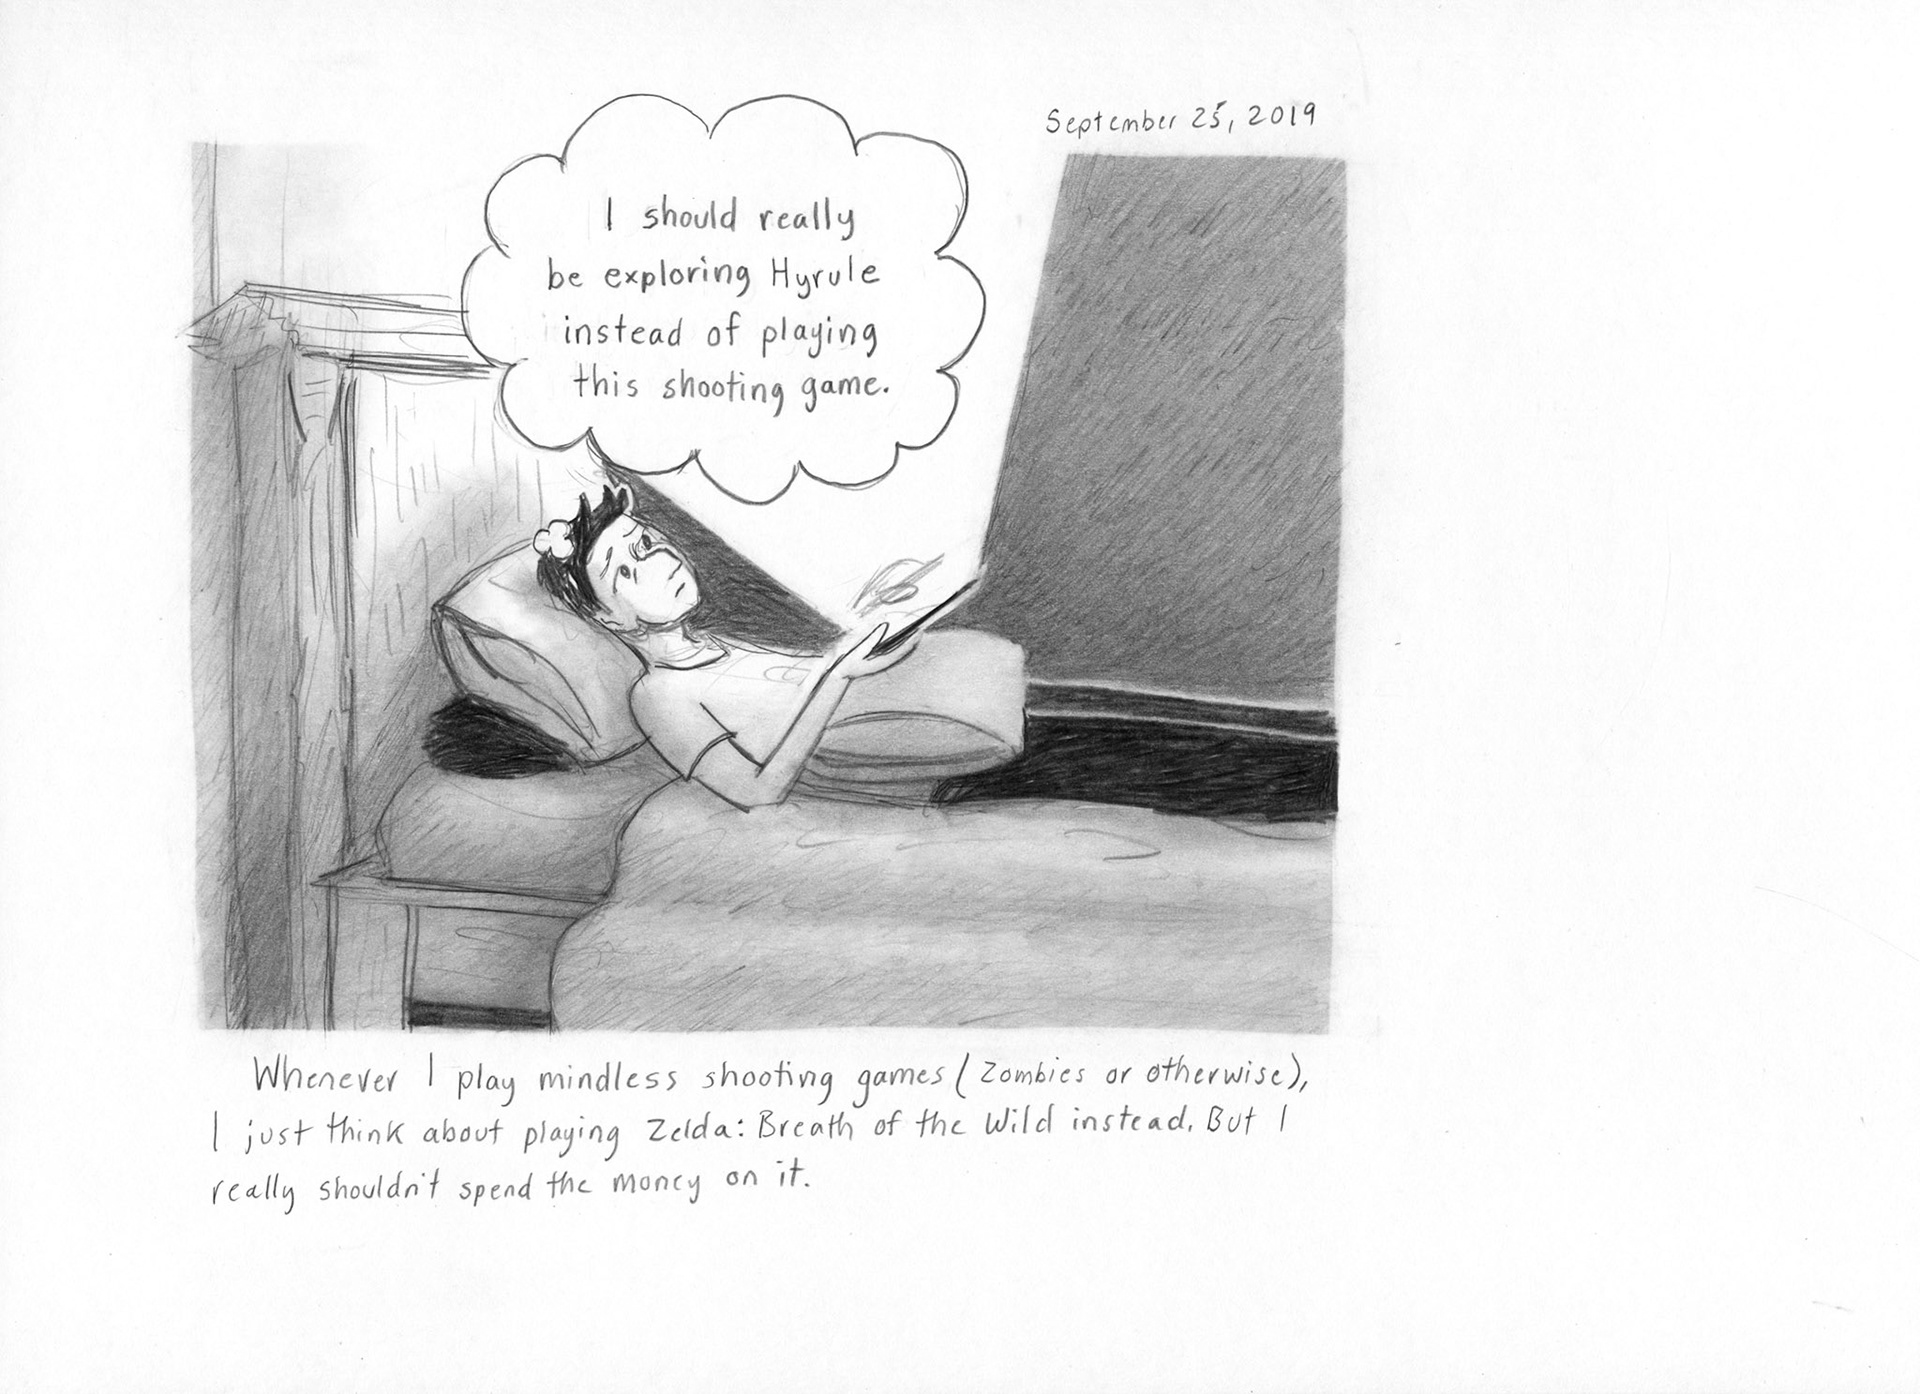 September 25, 2019
I should really
be exploring Hyrule
instead of playing
this shooting game.
Whenever I play mindless shooting games (Zombies or otherwise),
I just think about playing Zelda: Breath of the Wild instead. But I
really shouldn't spend the money on it.